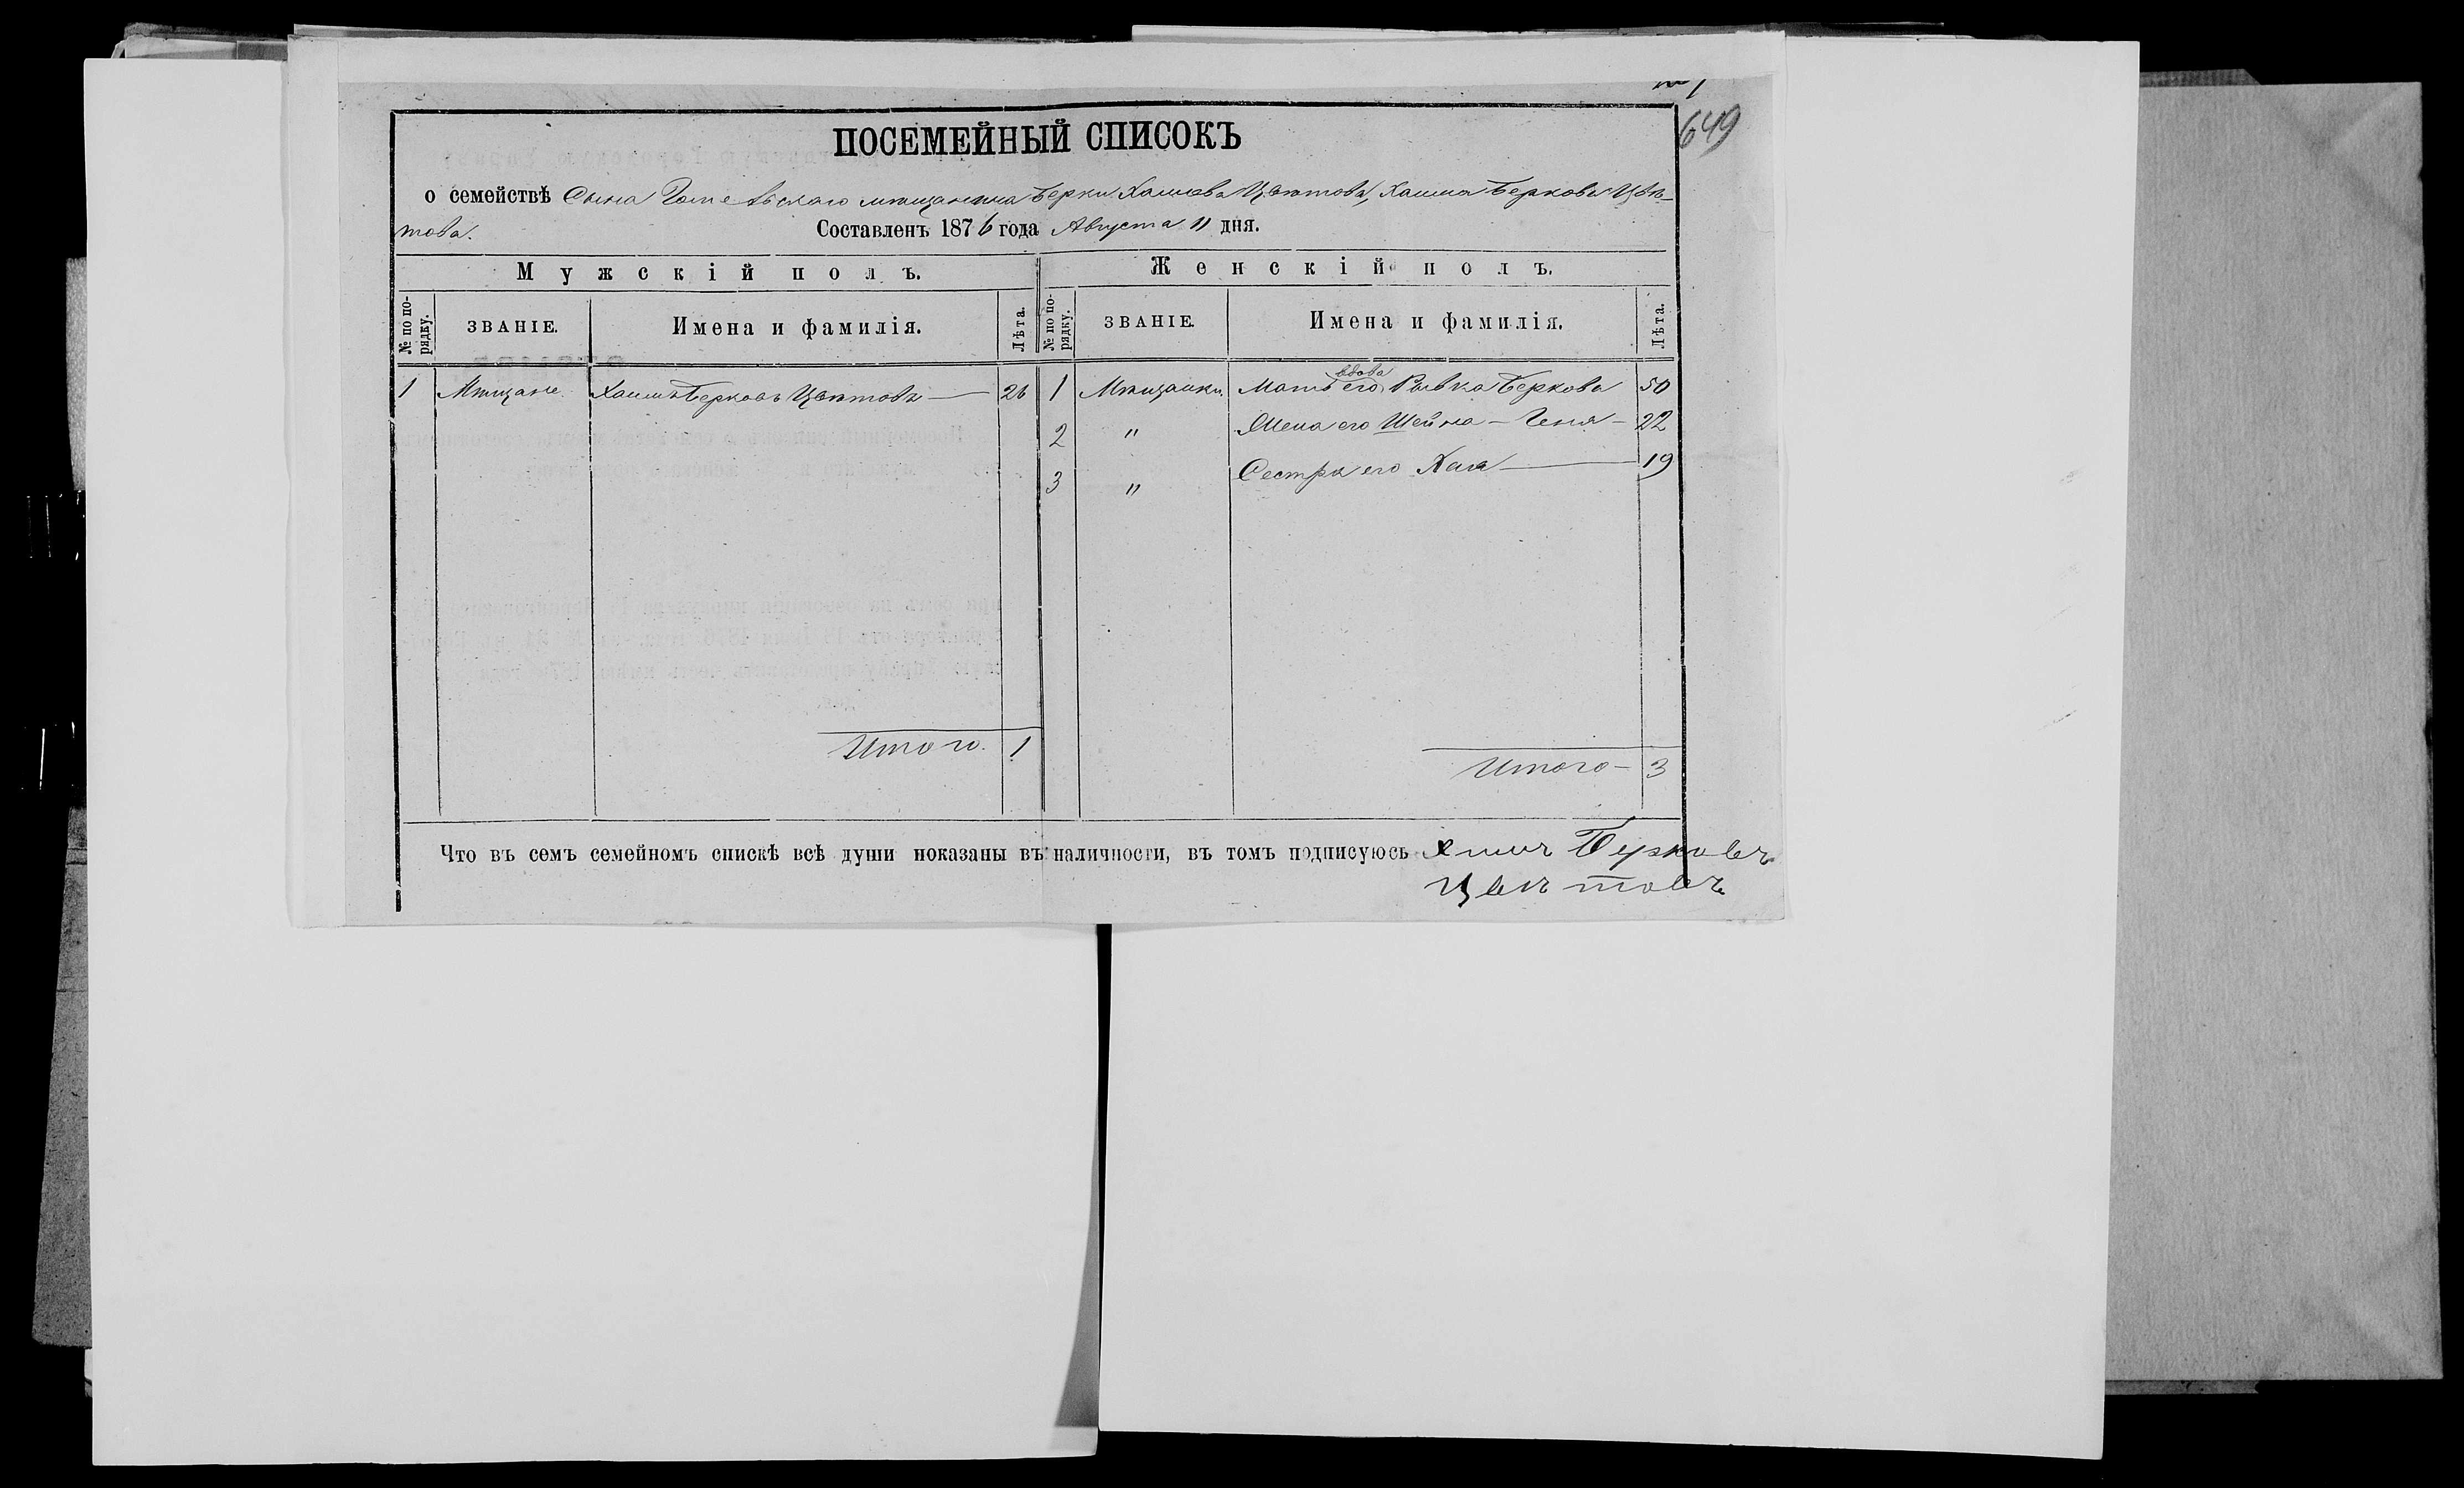 649
ПОСЕМЕЙНЫЙ СПИСОКЪ
о семействѣ Сына Гомельскаго мѣщанина Берки Хаимова Цвѣтова, Хаима Беркова Цвѣ-
това. Составленъ 1876 года Августа 11 дня.
Мужскій полъ. Женскій полъ.
№ по по-рядку. ЗВАНІЕ. Имена и фамилія. Лѣта. № по по-рядку. ЗВАНІЕ. Имена и фамилія. Лѣта.
вдова
1 Мѣщане. Хаимъ Берковъ Цвѣтовъ — 26 1 Мѣщанки. Мать его Рывка Беркова 50
2 " Жена его Шейна - Геня - 22
3 " Сестра его Хая — 19
Итого. 1 Итого - 3
Что въ семъ семейномъ спискѣ всѣ души показаны въ наличности, въ томъ подписуюсь Хаимъ Берковъ
Цветовъ